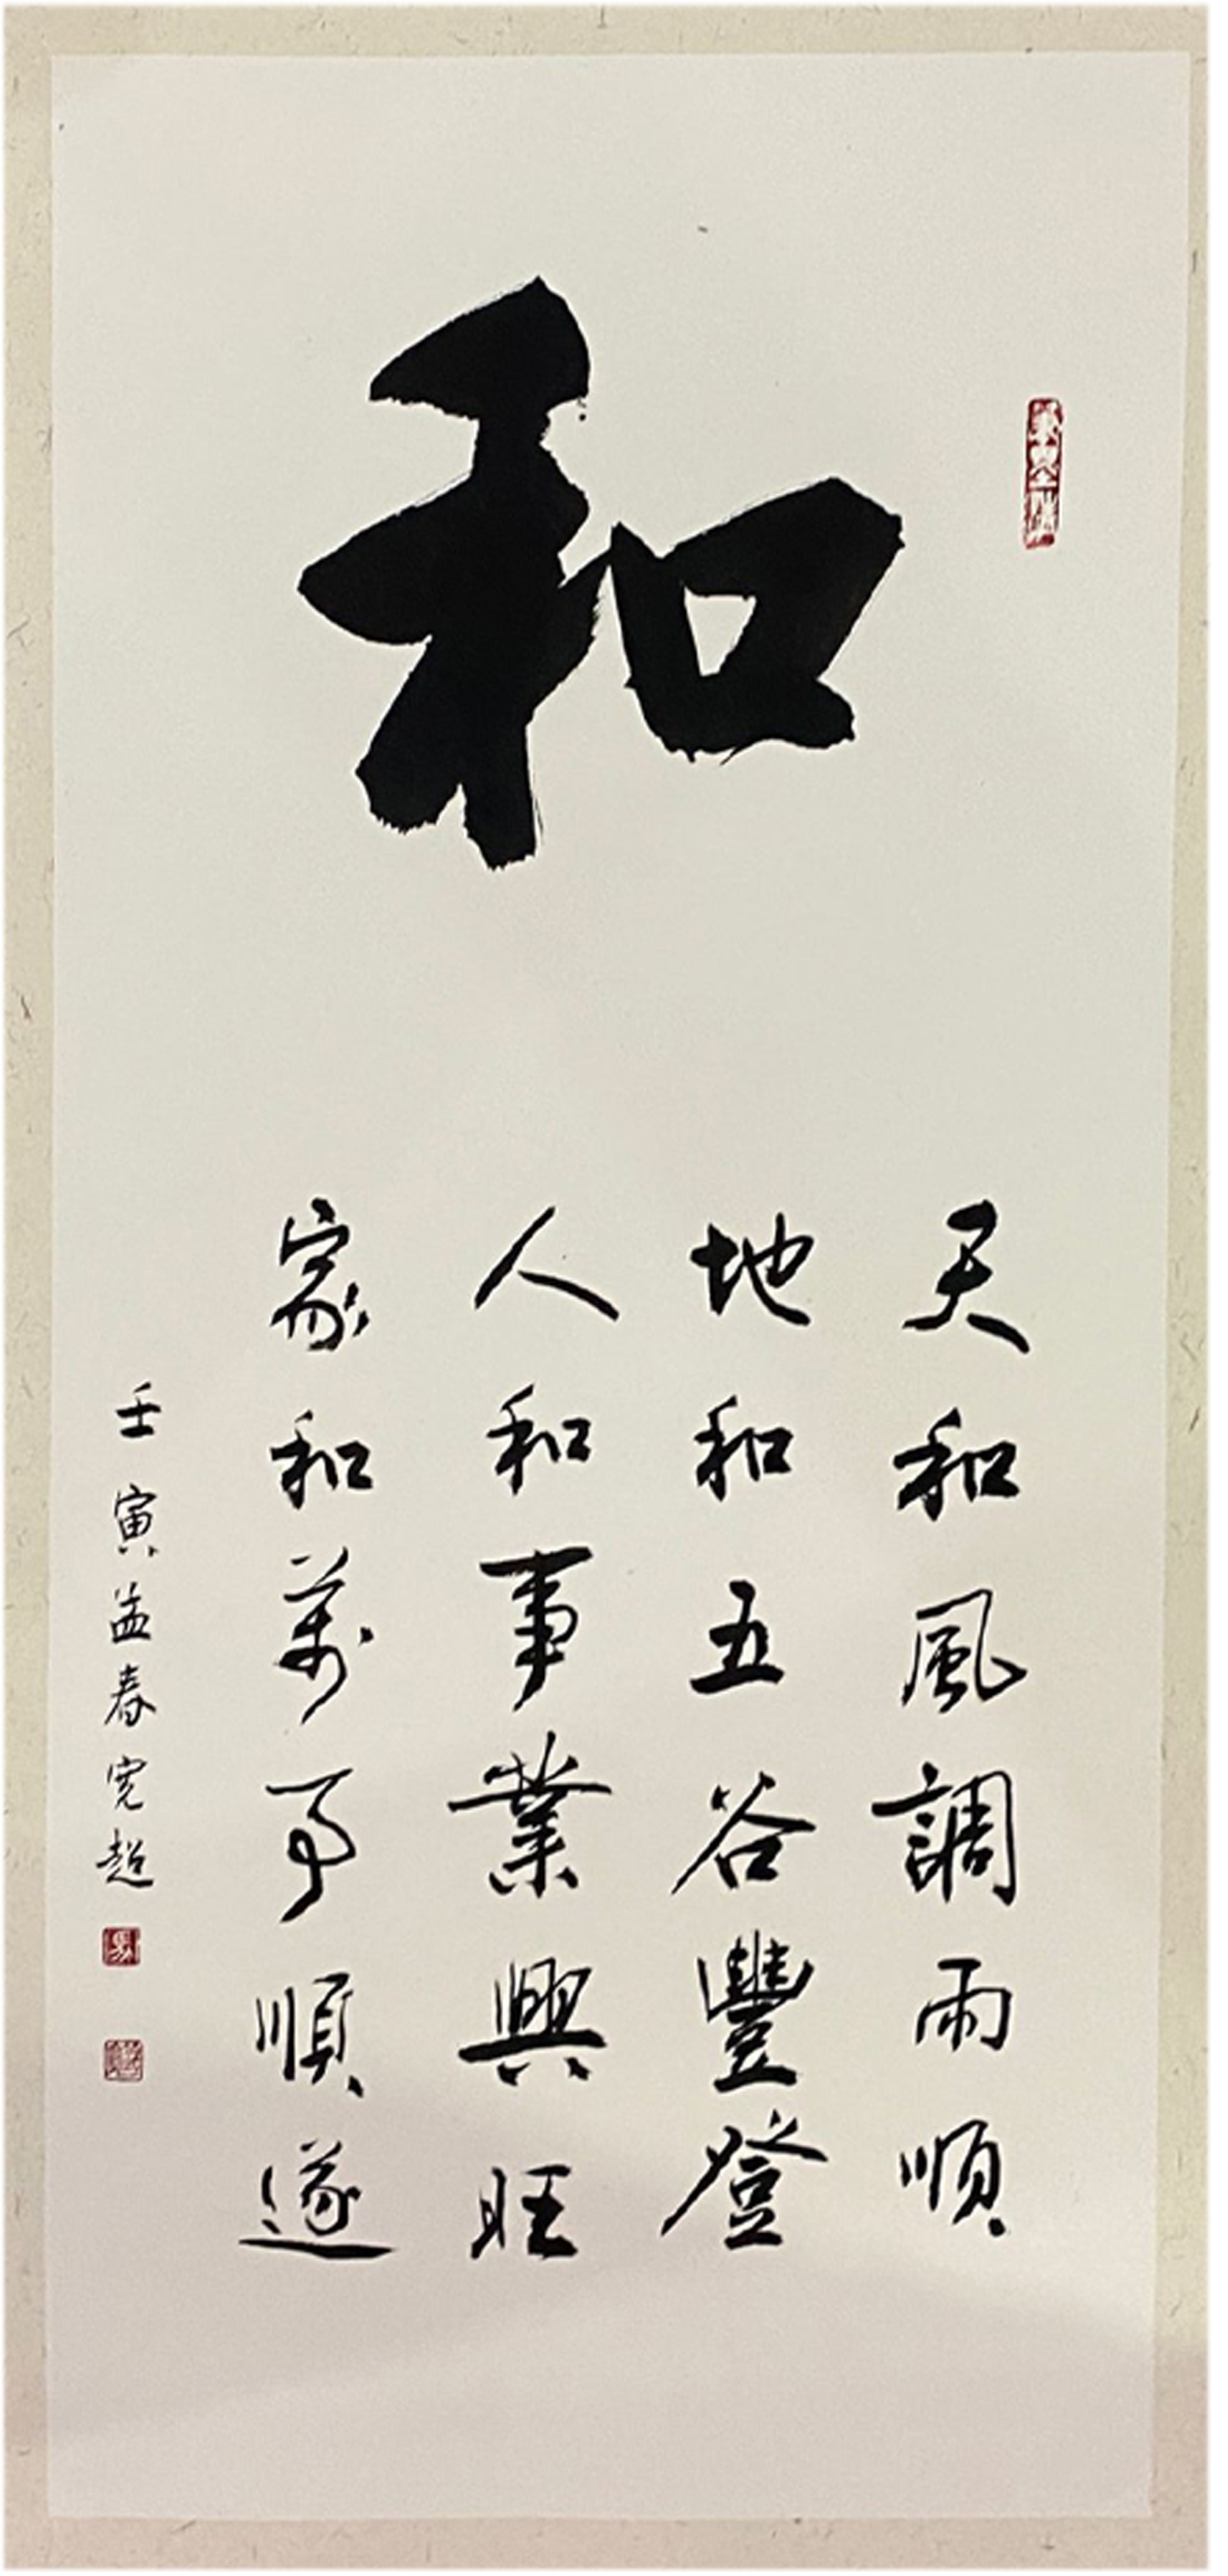 和
天和風調雨順
地和五谷豐登
人和事業興旺
家和萬事順遂
壬寅孟春宪超